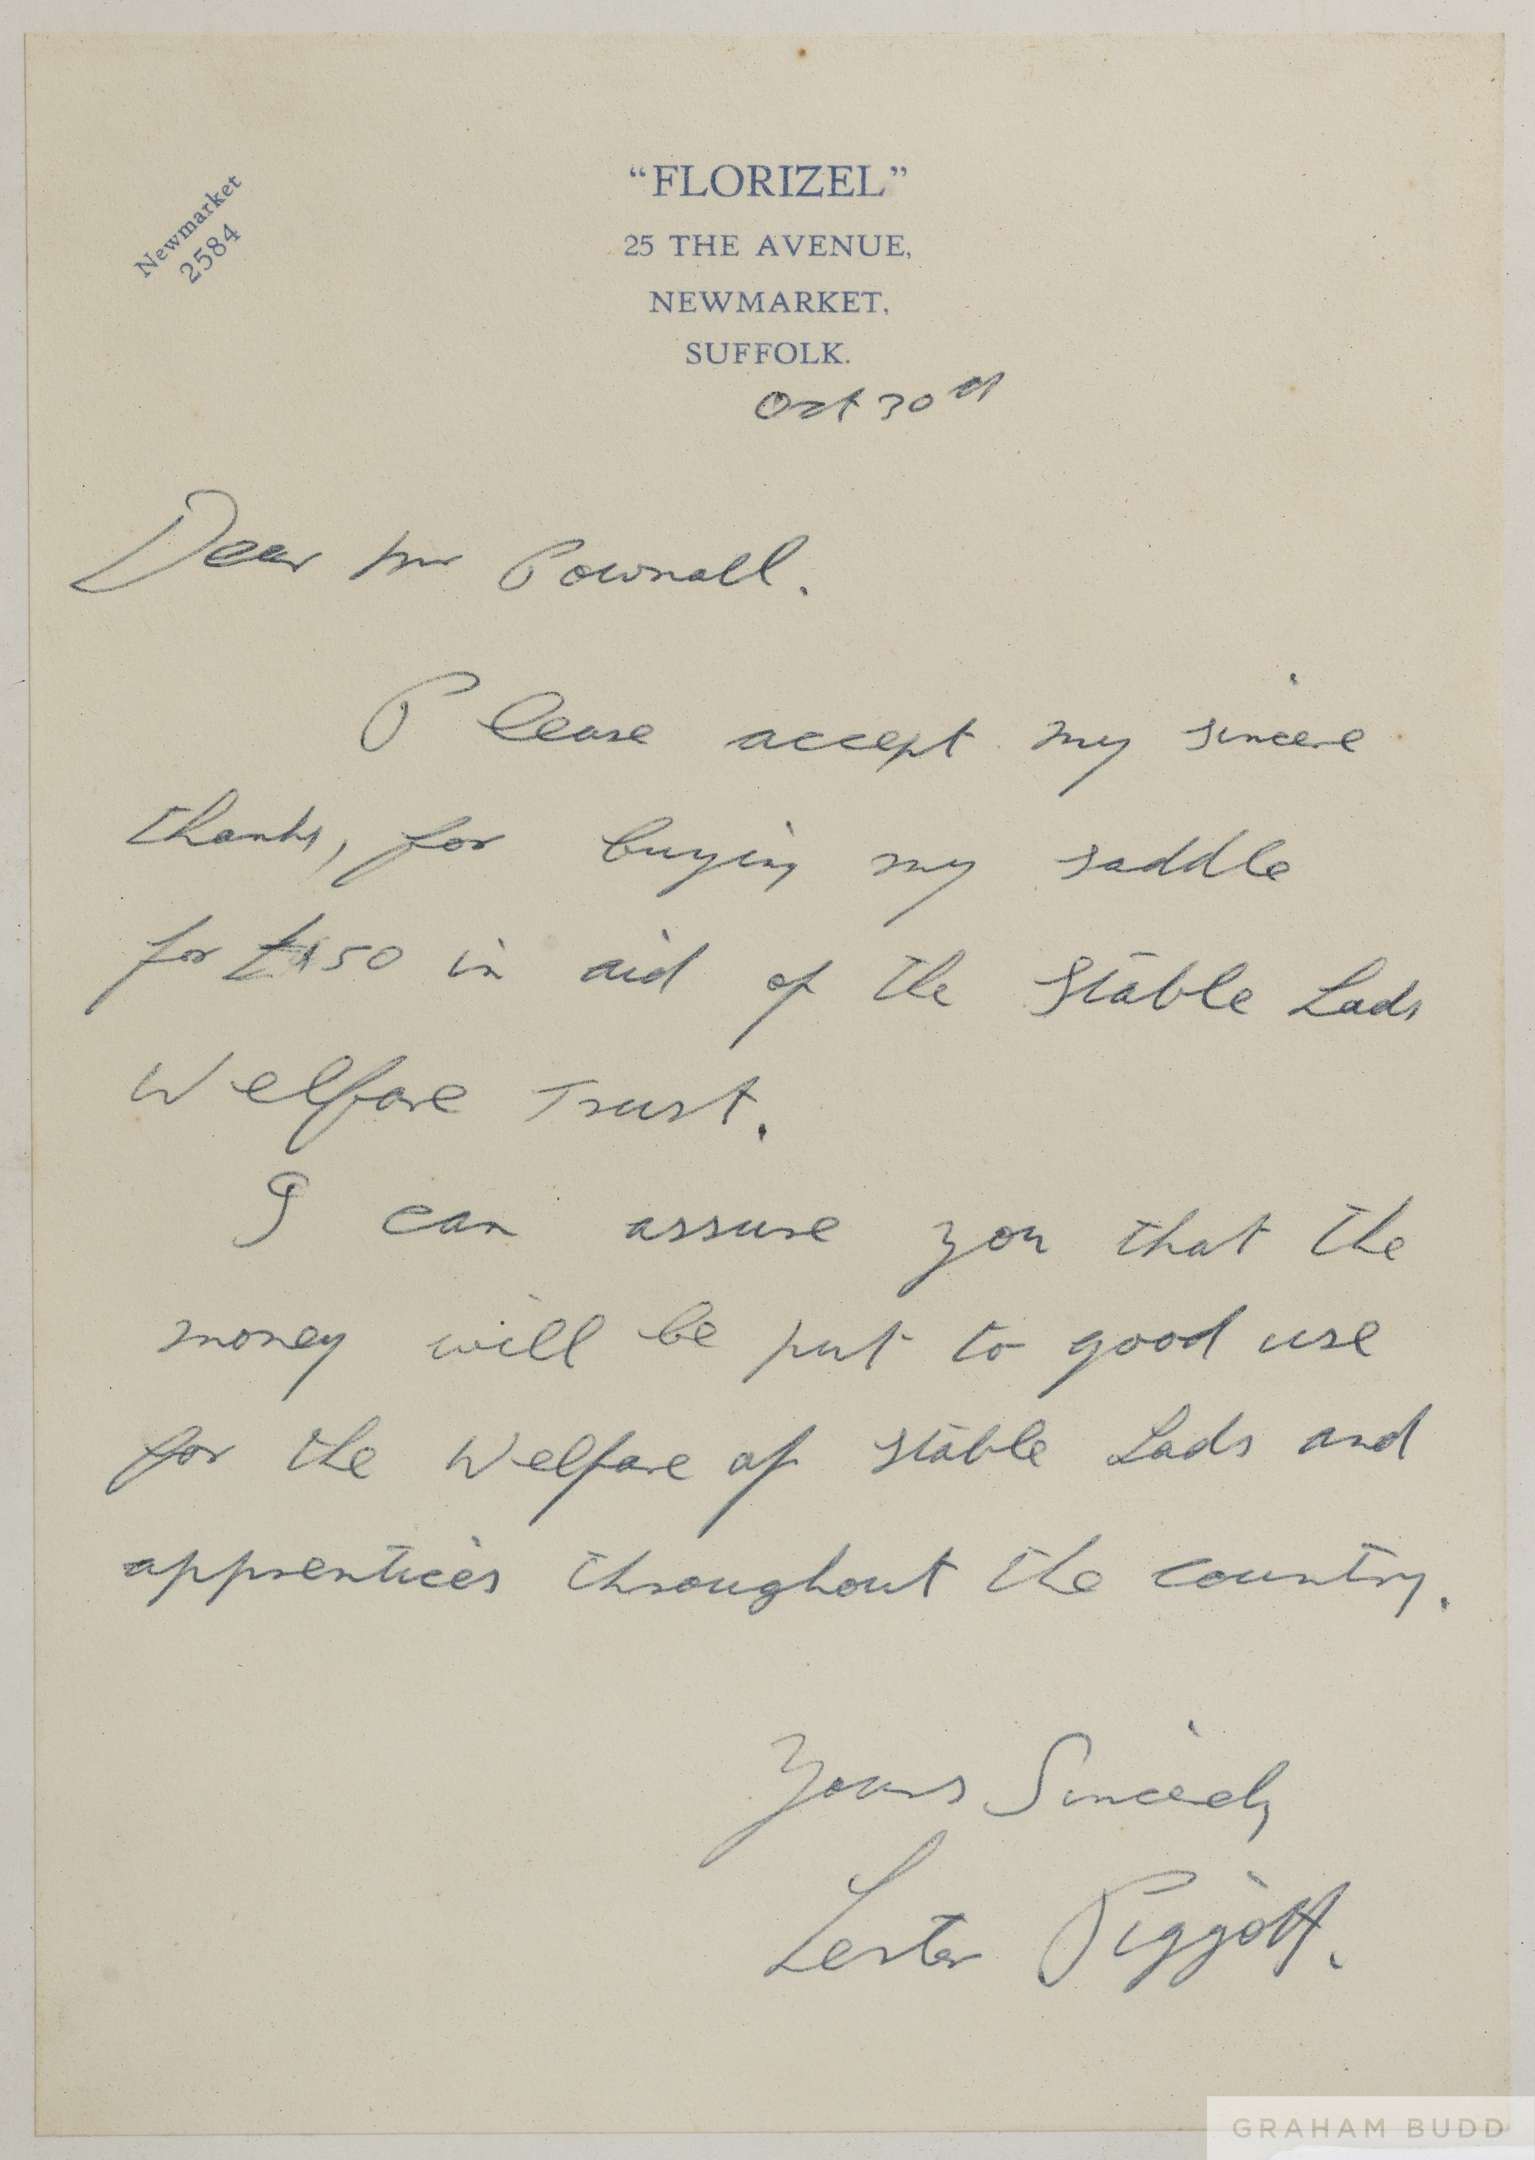 Newmarket
2584
"FLORIZEL"
25 THE AVENUE,
NEWMARKET,
SUFFOLK.
Oct 30th
Dear Mr Pownall.
Please accept my sincere
thanks, for buying my saddle
for £150 in aid of the Stable Lads
Welfare Trust.
I can assure you that the
money will be put to good use
for the Welfare of Stable Lads and
apprentices throughout the country.
Yours Sincerely
Lester Piggott.
GRAHAM BUDD